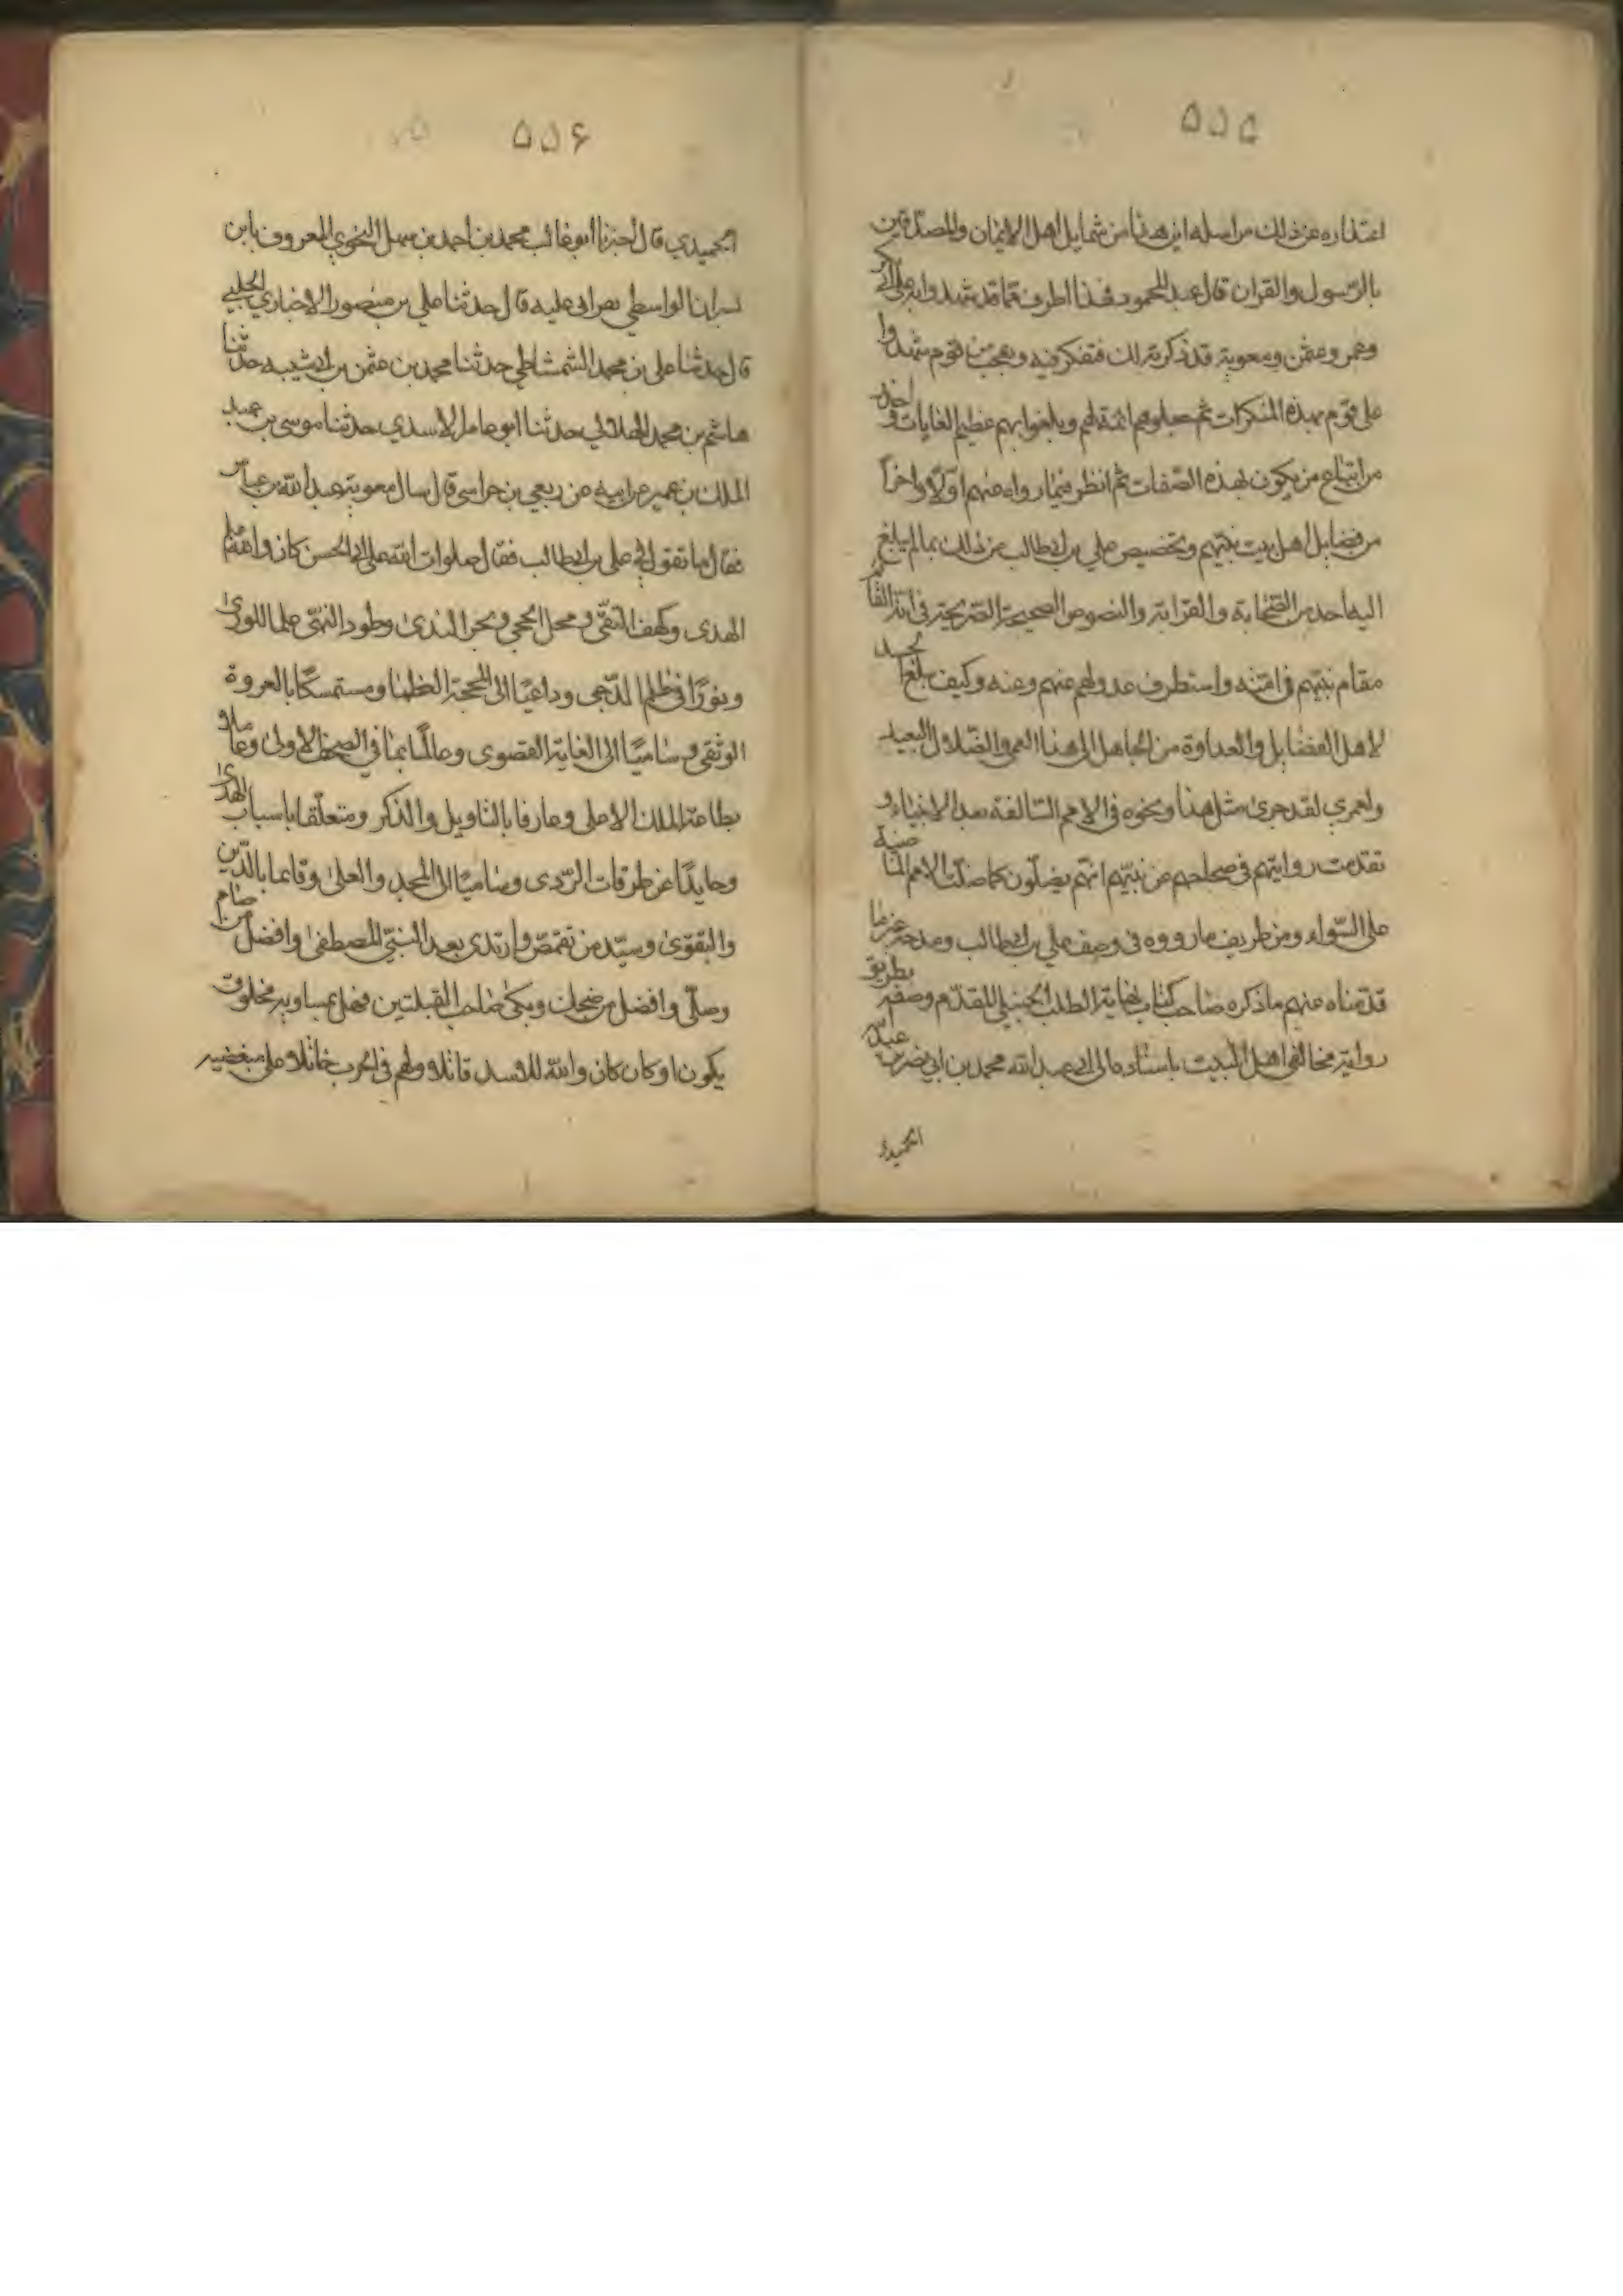 ۵۵۵
اعتذاره عن ذلك من اسله اين هذا من شمايل اهل الايمان والمصدقين
بالرسول والقران قال عبد المحمود فهذا طرف مما قد شهدوا به على ابي بكر
وعمر وعثمن ومعوية قد ذكرته لك فتفكر فيه وتعجب من قوم شهدوا
على قوم بهذه المنكرات ثم جعلوهم ائمة لهم وبلغوا بهم عظيم الغايات واحذر
من اتباع من يكون لهذه الصفات ثم انظر فيما رواه عنهم اولا واخرا
من فضايل اهل بيت نبيهم وتخصيص علي بن ابي طالب من ذلك بما لم يبلغ
اليه احد من الصحابة والقرابة والنصوص الصحيحة الصريحة في انه القائم
مقام نبيهم في امته واستطرف عدولهم عنهم وعنه وكيف بلغ الحسد
لاهل الفضايل والعداوة من الجاهل الى هذا العمى والضلال البعيد
ولعمري لقد جرى مثل هذا ونحوه في الامم السالفة بعد الانبياء و
تقدمت روايتهم في صحاحهم عن نبيهم انهم يضلون كما ضلت الامم الماضية
على السواء ومن طريف ما رووه في وصف علي بن ابي طالب ومدحه غير ما
قدمناه عنهم ما ذكره صاحب كتاب نهاية الطلب الحنبلي المقدم وصفه بطريق
رواية مخالفي اهل البيت باسناده الى ابي عبد الله محمد بن ابي نصر بن عبد الله
الحميدي
۵۵۶
الحميدي قال اخبرنا ابو غالب محمد بن احمد بن سهل النحوي المعروف بابن
بشران الواسطي بقراءتي عليه قال حدثنا علي بن منصور الاخباري الحلبي
قال حدثنا علي بن محمد الشمشاطي حدثنا محمد بن عثمن بن ابي شيبه حدثنا
هاشم بن محمد الهلالي حدثنا ابو عامر الاسدي حدثنا موسى بن عبد
الملك بن عمير عن ابيه عن ربعي بن حراس قال سال معوية عبد الله بن عباس
فقال ما تقول في علي بن ابي طالب فقال صلوات الله على ابي الحسن كان والله علم
الهدى وكهف التقى ومحل الحجى وبحر الندى وطود النهى علما للورى
ونورا في ظلم الدجى وداعيا الى المحجة العظمى ومستمسكا بالعروة
الوثقى وساميا الى الغاية القصوى وعالما بما في الصحف الاولى وعاملا
بطاعة الملك الاعلى وعارفا بالتاويل والذكر ومتعلقا باسباب الهدى
وحايدا عن طرقات الردى وساميا الى المجد والعلى وقائما بالدين
والتقوى وسيد من تقمص وارتدى بعد النبي المصطفى وافضل من صام
وصلى وافضل من ضحك وبكى صاحب القبلتين فهل يساويه مخلوق
يكون او كان كان والله للاسد قاتلا ولهم في الحرب خاتلا على مبغضيه